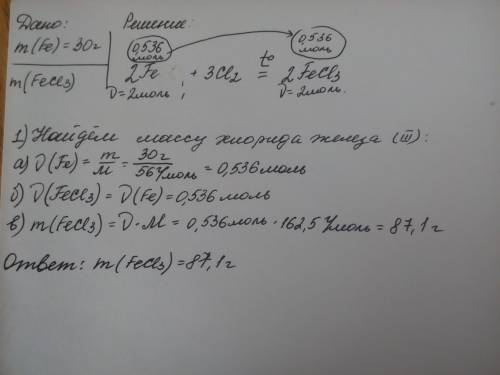 Дано:
Решение:
m(Fe)=30г
m(FeCl3)
0,536 моль
0,536 моль
2Fe + 3Cl2 = 2FeCl3
t°
ν=2моль ;
ν=2моль.
1) Найдём массу хлорида железа (III):
а) ν(Fe) = m/M = 30г/56г/моль = 0,536моль
б) ν(FeCl3) = ν(Fe) = 0,536моль
в) m(FeCl3) = ν·M = 0,536моль · 162,5г/моль = 87,1г
Ответ: m(FeCl3) = 87,1г